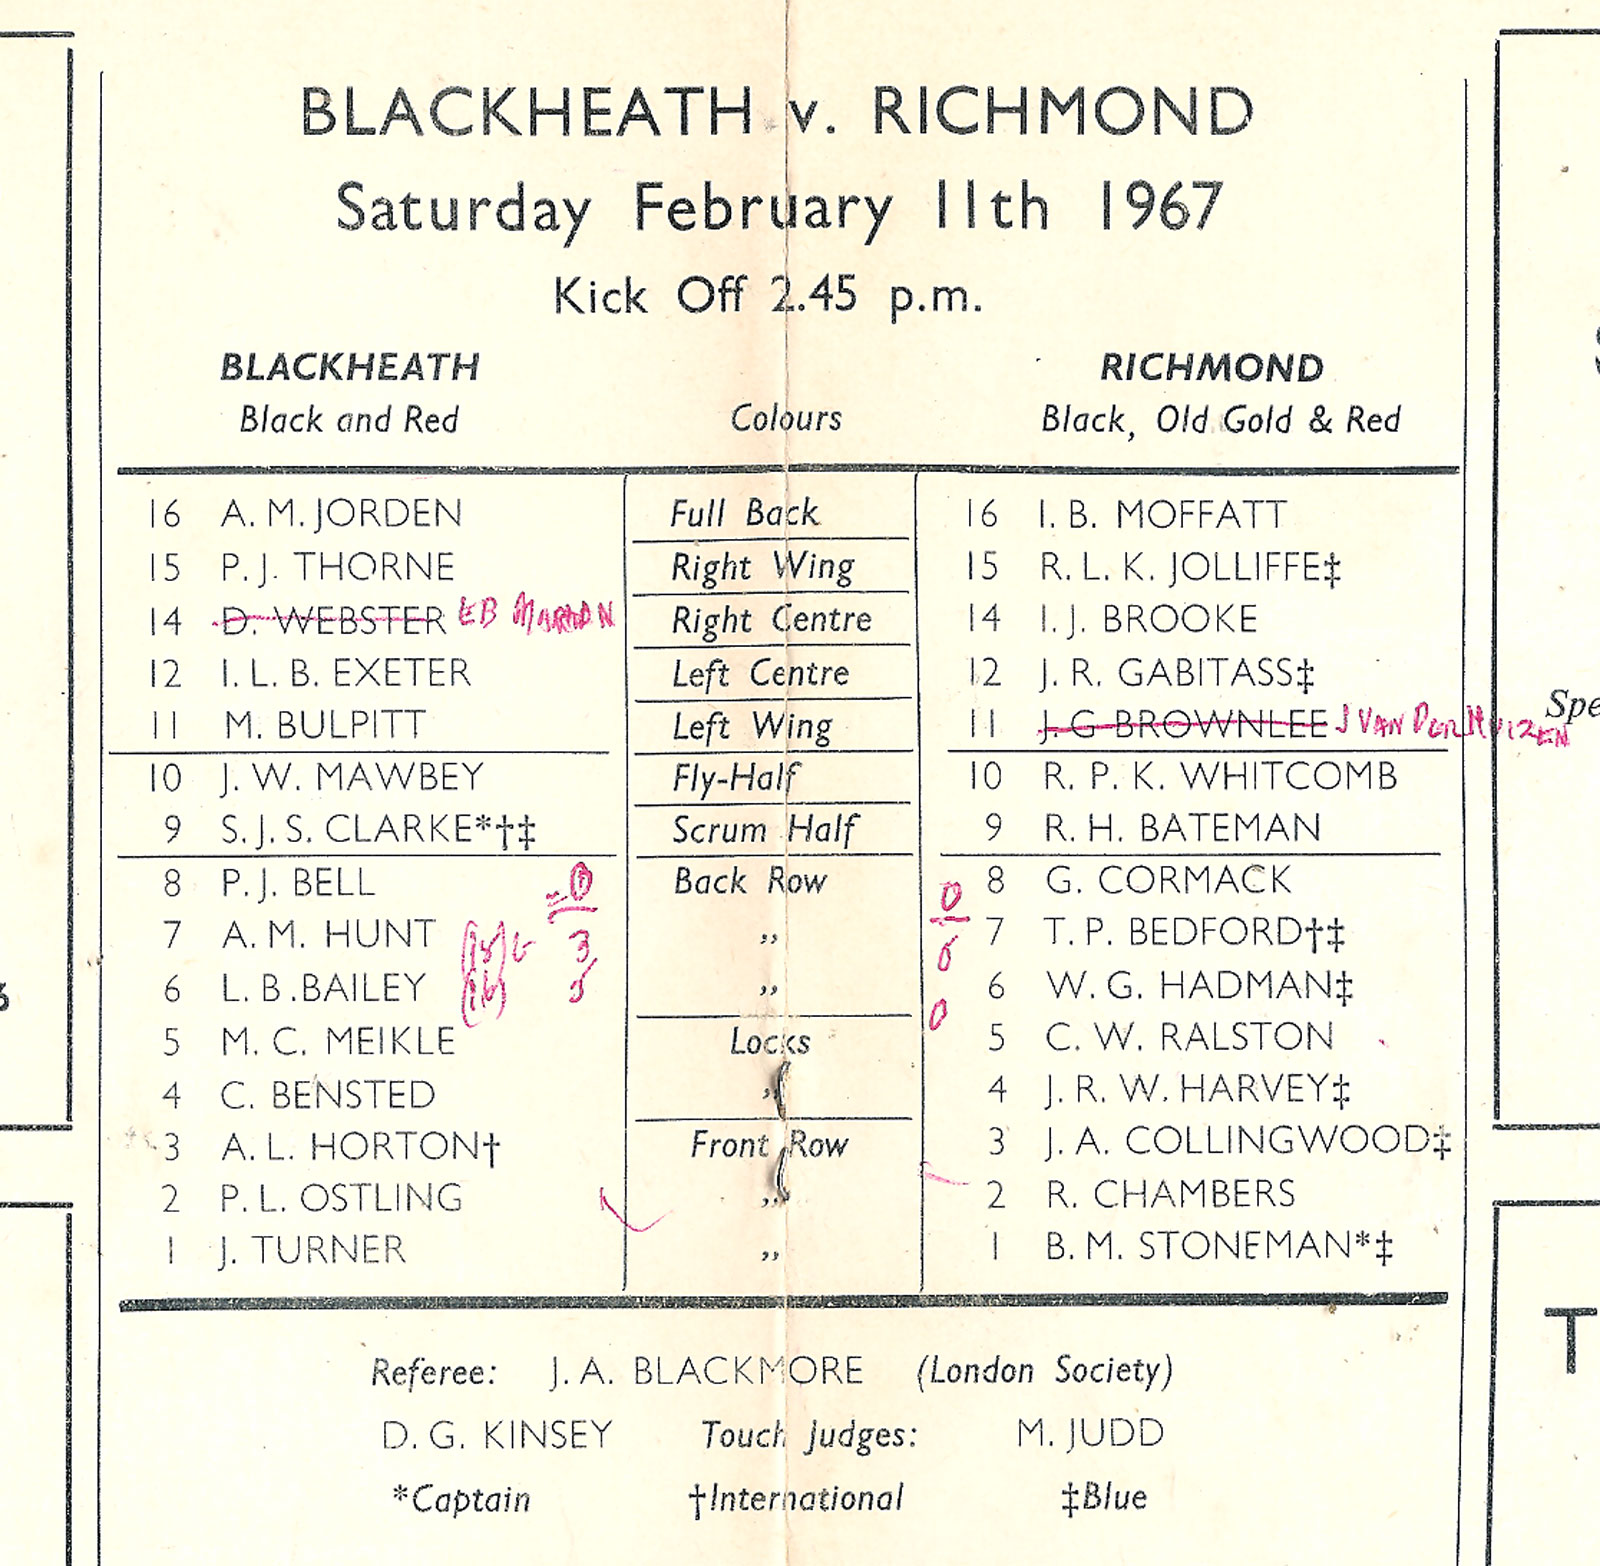 BLACKHEATH v. RICHMOND
Saturday February 11th 1967
Kick Off 2.45 p.m.
BLACKHEATH RICHMOND
Black and Red Colours Black, Old Gold & Red
16 A. M. JORDEN Full Back 16 I. B. MOFFATT
15 P. J. THORNE Right Wing 15 R. L. K. JOLLIFFE‡
14 D. WEBSTER EB Right Centre 14 I. J. BROOKE
12 I. L. B. EXETER Left Centre 12 J. R. GABITASS‡
11 M. BULPITT Left Wing 11 J. G BROWNLEE J VAN DER MUIZEN
Spe
10 J. W. MAWBEY Fly-Half 10 R. P. K. WHITCOMB
9 S. J. S. CLARKE*†‡ Scrum Half 9 R. H. BATEMAN
8 P. J. BELL Back Row 0 8 G. CORMACK
7 A. M. HUNT 3 „ 7 T. P. BEDFORD†‡
6 L. B. BAILEY „ 6 W. G. HADMAN‡
5 M. C. MEIKLE Locks 0 5 C. W. RALSTON
4 C. BENSTED „ 4 J. R. W. HARVEY‡
3 A. L. HORTON† Front Row 3 J. A. COLLINGWOOD‡
2 P. L. OSTLING „ 2 R. CHAMBERS
1 J. TURNER „ 1 B. M. STONEMAN*‡
Referee: J. A. BLACKMORE (London Society)
D. G. KINSEY Touch Judges: M. JUDD
*Captain †International ‡Blue
T